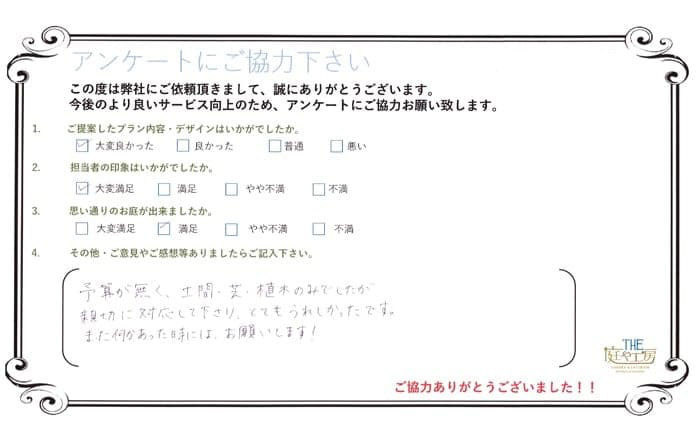 アンケートにご協力下さい
この度は弊社にご依頼頂きまして、誠にありがとうございます。
今後のより良いサービス向上のため、アンケートにご協力お願い致します。
1. ご提案したプラン内容・デザインはいかがでしたか。
大変良かった 良かった 普通 悪い
2. 担当者の印象はいかがでしたか。
大変満足 満足 やや不満 不満
3. 思い通りのお庭が出来ましたか。
大変満足 満足 やや不満 不満
4. その他・ご意見やご感想等ありましたらご記入下さい。
予算が無く、土間・芝・植木のみでしたが
親切に対応して下さり、とてもうれしかったです。
また何かあった時には、お願いします!
THE
庭や工房
ご協力ありがとうございました!!